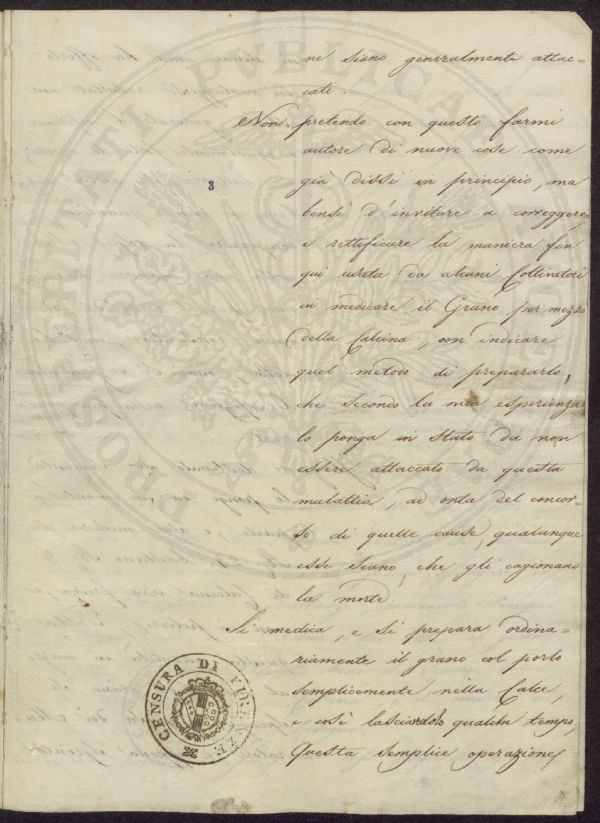 ne siano generalmente attac-
cati.
Non pretendo con questo farmi
autore di nuove cose come
già dissi in principio, ma
bensì d'invitare a correggere,
e rettificare la maniera fin
qui usata da alcuni Coltivatori
in medicare il Grano per mezzo
della Calcina, con indicare
quel metodo di prepararlo,
che secondo la mia esperienza
lo ponga in stato da non
essere attaccato da questa
malattia, ad onta del concor-
so di quelle cause, qualunque
esse siano, che gli cagionano
la morte.
Si medica, e si prepara ordina-
riamente il grano col porlo
semplicemente nella Calce,
e così lasciandolo qualche tempo,
Questa semplice operazione
3
CENSURA DI FIRENZE
PROSPERITATI PVBLICAE